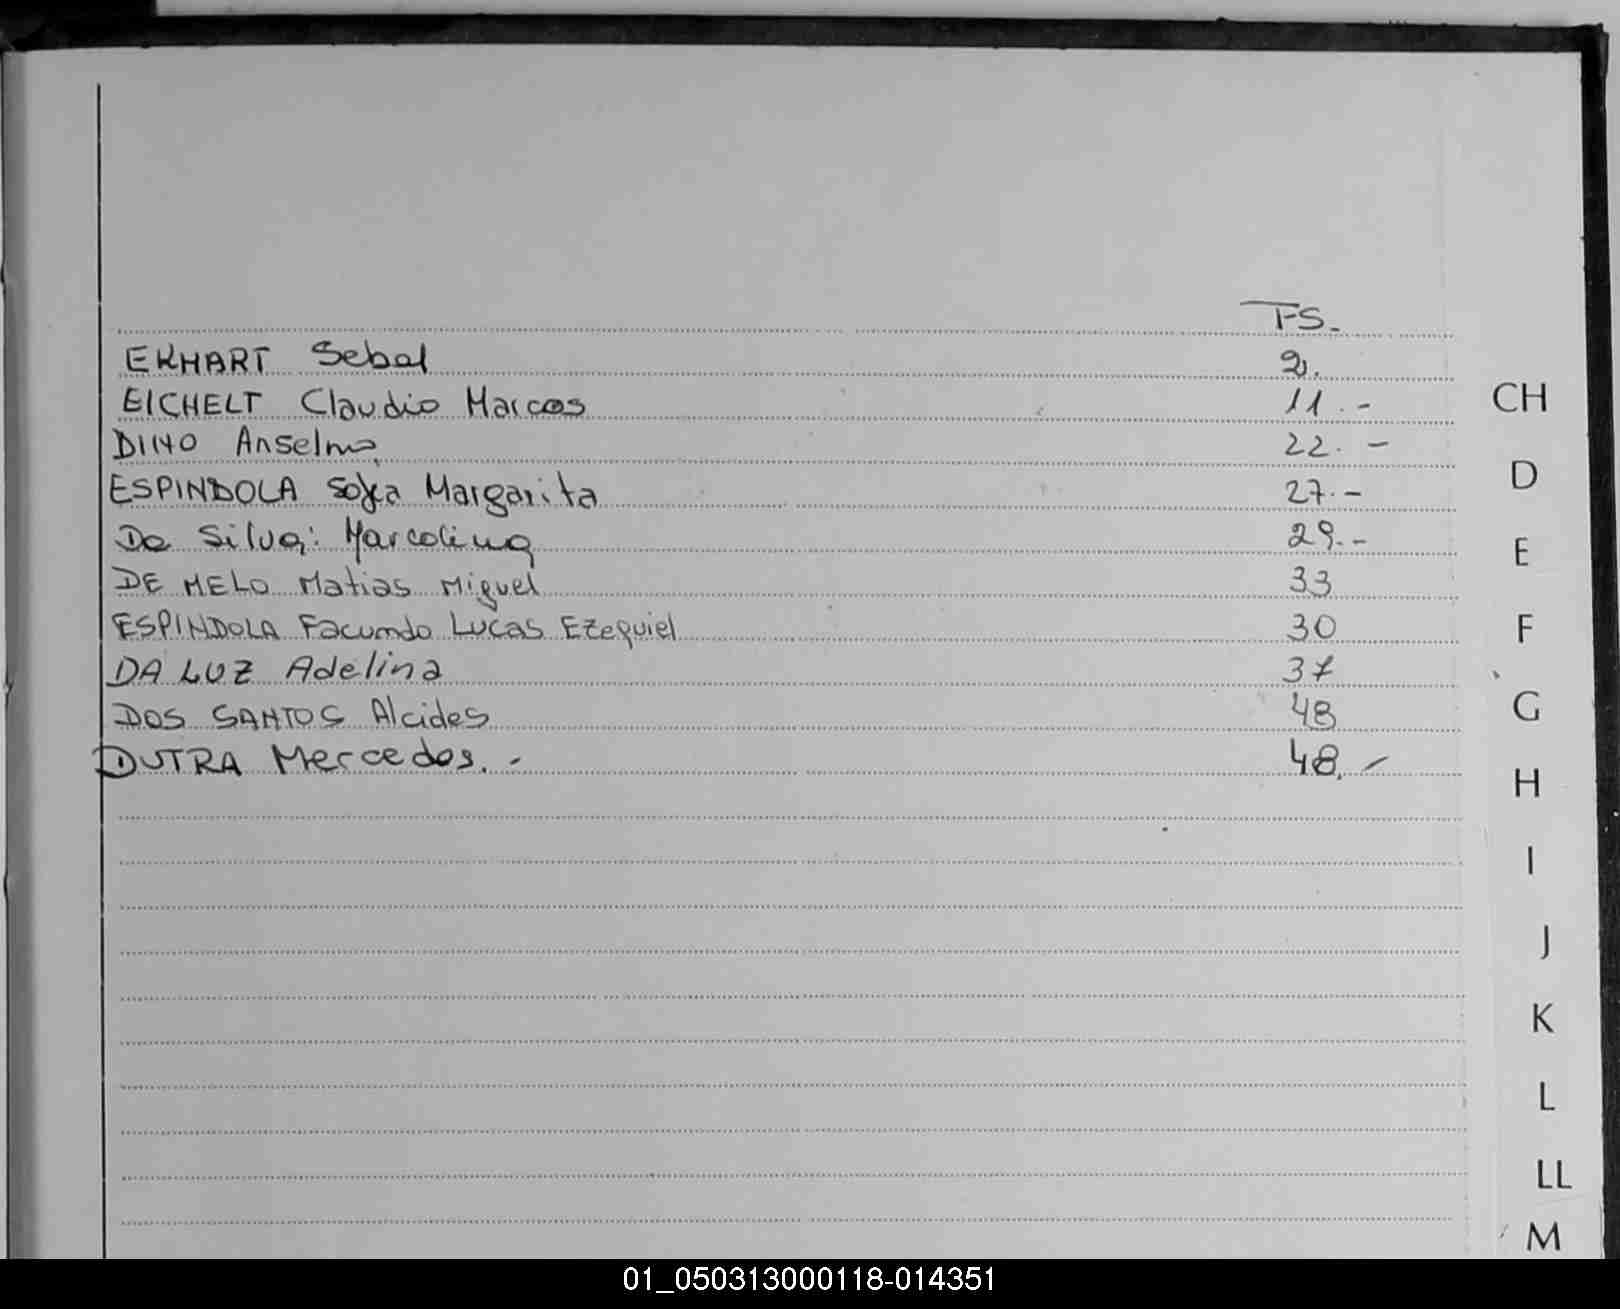 FS.
EKHART Sebal 2.
EICHELT Claudio Marcos 11.-
DINO Anselmo 22.-
ESPINDOLA Sofia Margarita 27.-
Da Silva: Marcolina 29.-
DE MELO Matias Miguel 33
ESPINDOLA Facundo Lucas Ezequiel 30
DA LUZ Adelina 37
DOS SANTOS Alcides 48
DUTRA Mercedes.- 48.-
CH
D
E
F
G
H
I
J
K
L
LL
M
01_050313000118-014351